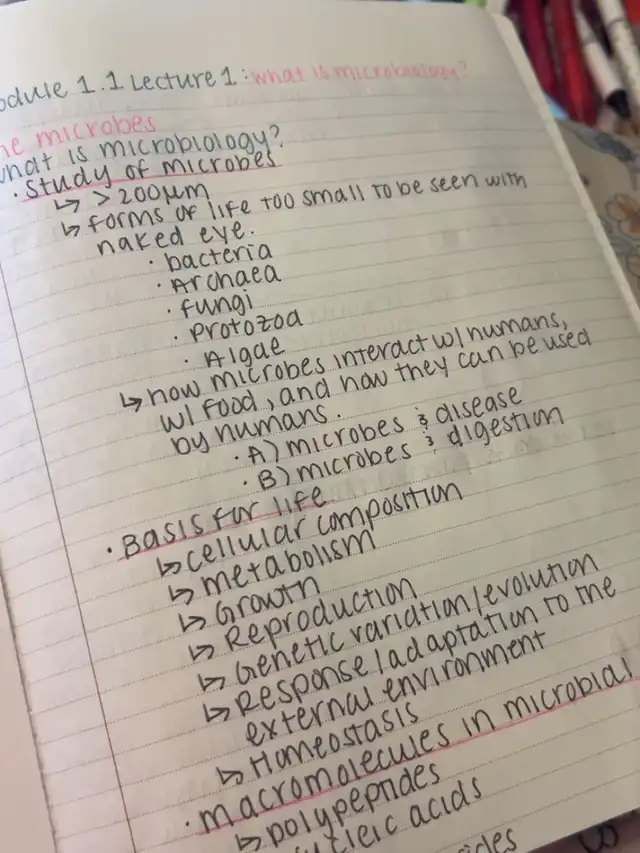 odule 1.1 Lecture 1: what is microbiology?
he microbes
what is microbiology?
· Study of microbes
↳ > 200μm
↳ forms of life too small to be seen with
naked eye.
· bacteria
· Archaea
· fungi
· Protozoa
· Algae
↳ how microbes interact w/ humans,
w/ food, and how they can be used
by humans.
· A) microbes & disease
· B) microbes & digestion
· Basis for life
↳ cellular composition
↳ metabolism
↳ Growth
↳ Reproduction
↳ Genetic variation/evolution
↳ Response/adaptation to the
external environment
↳ Homeostasis
· macromolecules in microbial
↳ polypeptides
cleic acids